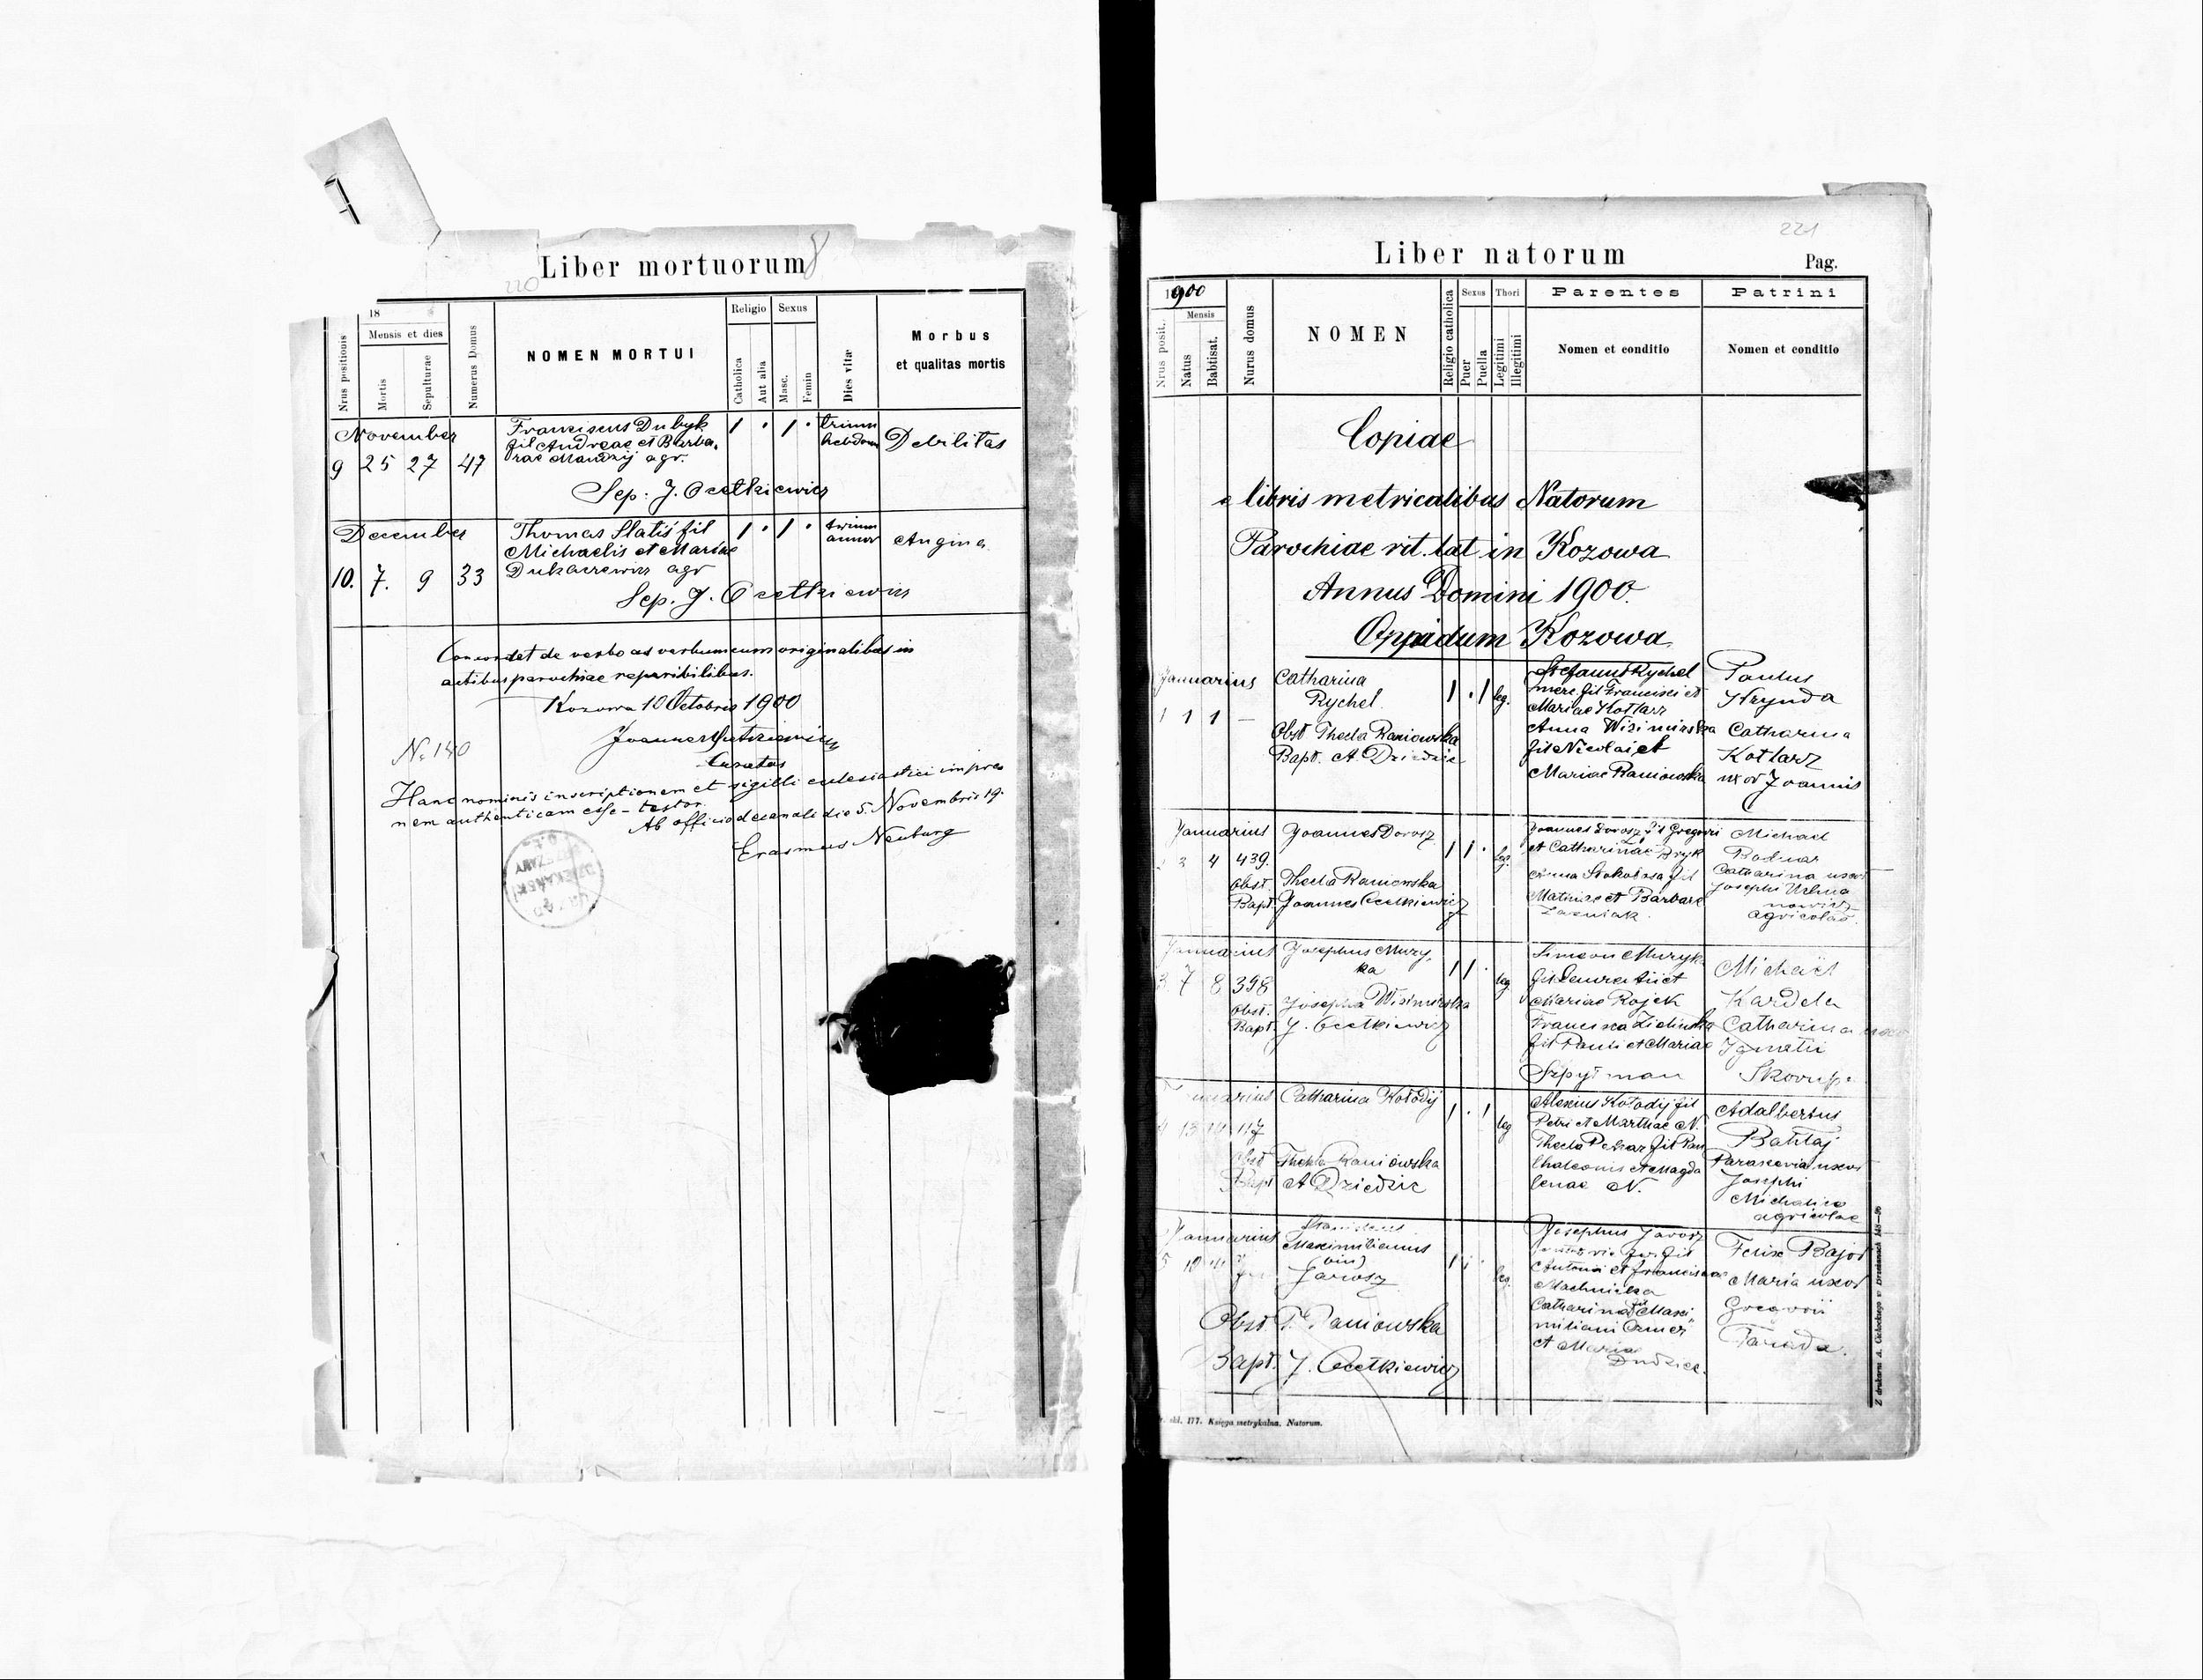 Liber mortuorum
220
18
Nrus positionis
Mensis et dies
Mortis
Sepulturae
Numerus Domus
NOMEN MORTUI
Religio
Catholica
Aut alia
Sexus
Masc.
Femin
Dies vitæ
Morbus
et qualitas mortis
November
9 25 27 47
Franciscus Dubyk
fil Andreae et Barba-
rae Mandzij agr.
1 · 1 ·
trium
hebdom
Debilitas
Sep: J. Ocetkiewicz
December
10. 7. 9 33
Thomas Slatiś fil
Michaelis et Mariae
agr
1 · 1 ·
trium
annor
Angina
Sep. J. Ocetkiewicz
Concordat de verbo ad verbum cum originalibus in
actibus parochiae reperibilibus.
Kozowa 10 Octobris 1900
Joannes Ocetkiewicz
Curatus
No 140
Hanc nominis inscriptionem et sigilli ecclesiastici impres
nem authenticam esse - testor.
Ab officio decanali die 5. Novembris 19.
Erasmus Neuburg
Liber natorum
221
Pag.
1900
Nrus posit.
Mensis
Natus
Babtisat.
Nurus domus
NOMEN
Religio catholica
Sexus
Puer
Puella
Thori
Legitimi
Illegitimi
Parentes
Nomen et conditio
Patrini
Nomen et conditio
Copiae
e libris metricalibus Natorum
Parochiae rit. lat in Kozowa
Annus Domini 1900.
Oppidum Kozowa
Januarius
1 1 1 —
Catharina
Rychel.
Obst Thecla Raniowska
Bapt. A Dziedzic
1 · 1 leg.
Stefanus Rychel
merc fil Francisci et
Mariae Kotlarz
Anna Wisiniewska
fil Nicolai et
Mariae Raniowska
Paulus
Hrynda
Catharina
Kotlarz
uxor Joannis
Januarius
2 3 4 439.
Joannes Dorosz
Obst. Thecla Raniowska
Bapt. Joannes Ocetkiewicz
1 1 · leg.
Joannes Dorosz fil Gregori
et Catharinae Bryk
Anna fil
et Barbarae
Michael
Bodnar
Catharina uxor
Josephi
agricolae.
Januarius
3. 7 8 398
Josephus Muzy-
ka
Obst. Josepha
Bapt. J. Ocetkiewicz
1 1 · leg
Simeon Muzyk
fil Laurentii et
Mariae Rojek
Francisca Zielinska
fil Pauli et Mariae
Szpytman
Michael
Kardela
Catharina uxor
Ignatii
Skorup
Januarius
4 13 14 117
Catharina Kołodij
Obst Thecla Raniowska
Bapt A Dziedzic
1 · 1 leg
Alexius Kołodij fil
Petri et Marthae N.
Thecla Pekar fil Pan
thaleonis et Magda
lenae N.
Adalbertus
Bałtaj
Parascevia uxor
Josephi
agricolae
Januarius
5
Maximilianus
(bin)
Jarosz
Obst. T. Raniowska
Bapt. J. Ocetkiewicz
1 1 · leg.
Josephus Jarosz
fil
Antonii et Franciscae
Machnicka
Catharina fil Maxi
miliani
et Maria
Dudzic.
Felix Bajor
Maria uxor
Gregorii
skl. 177. Księga metrykalna. Natorum.